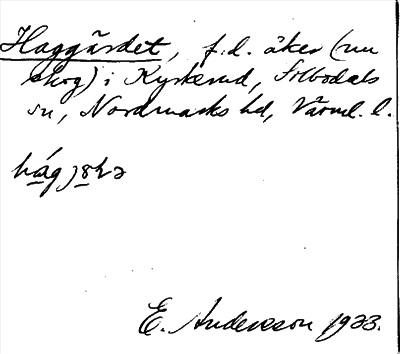 Haggärdet, f.d. åker (nu
skog) i Kyrkerud, Silbodals
sn, Nordmarks hd, Värml. l.
E. Andersson 1933.